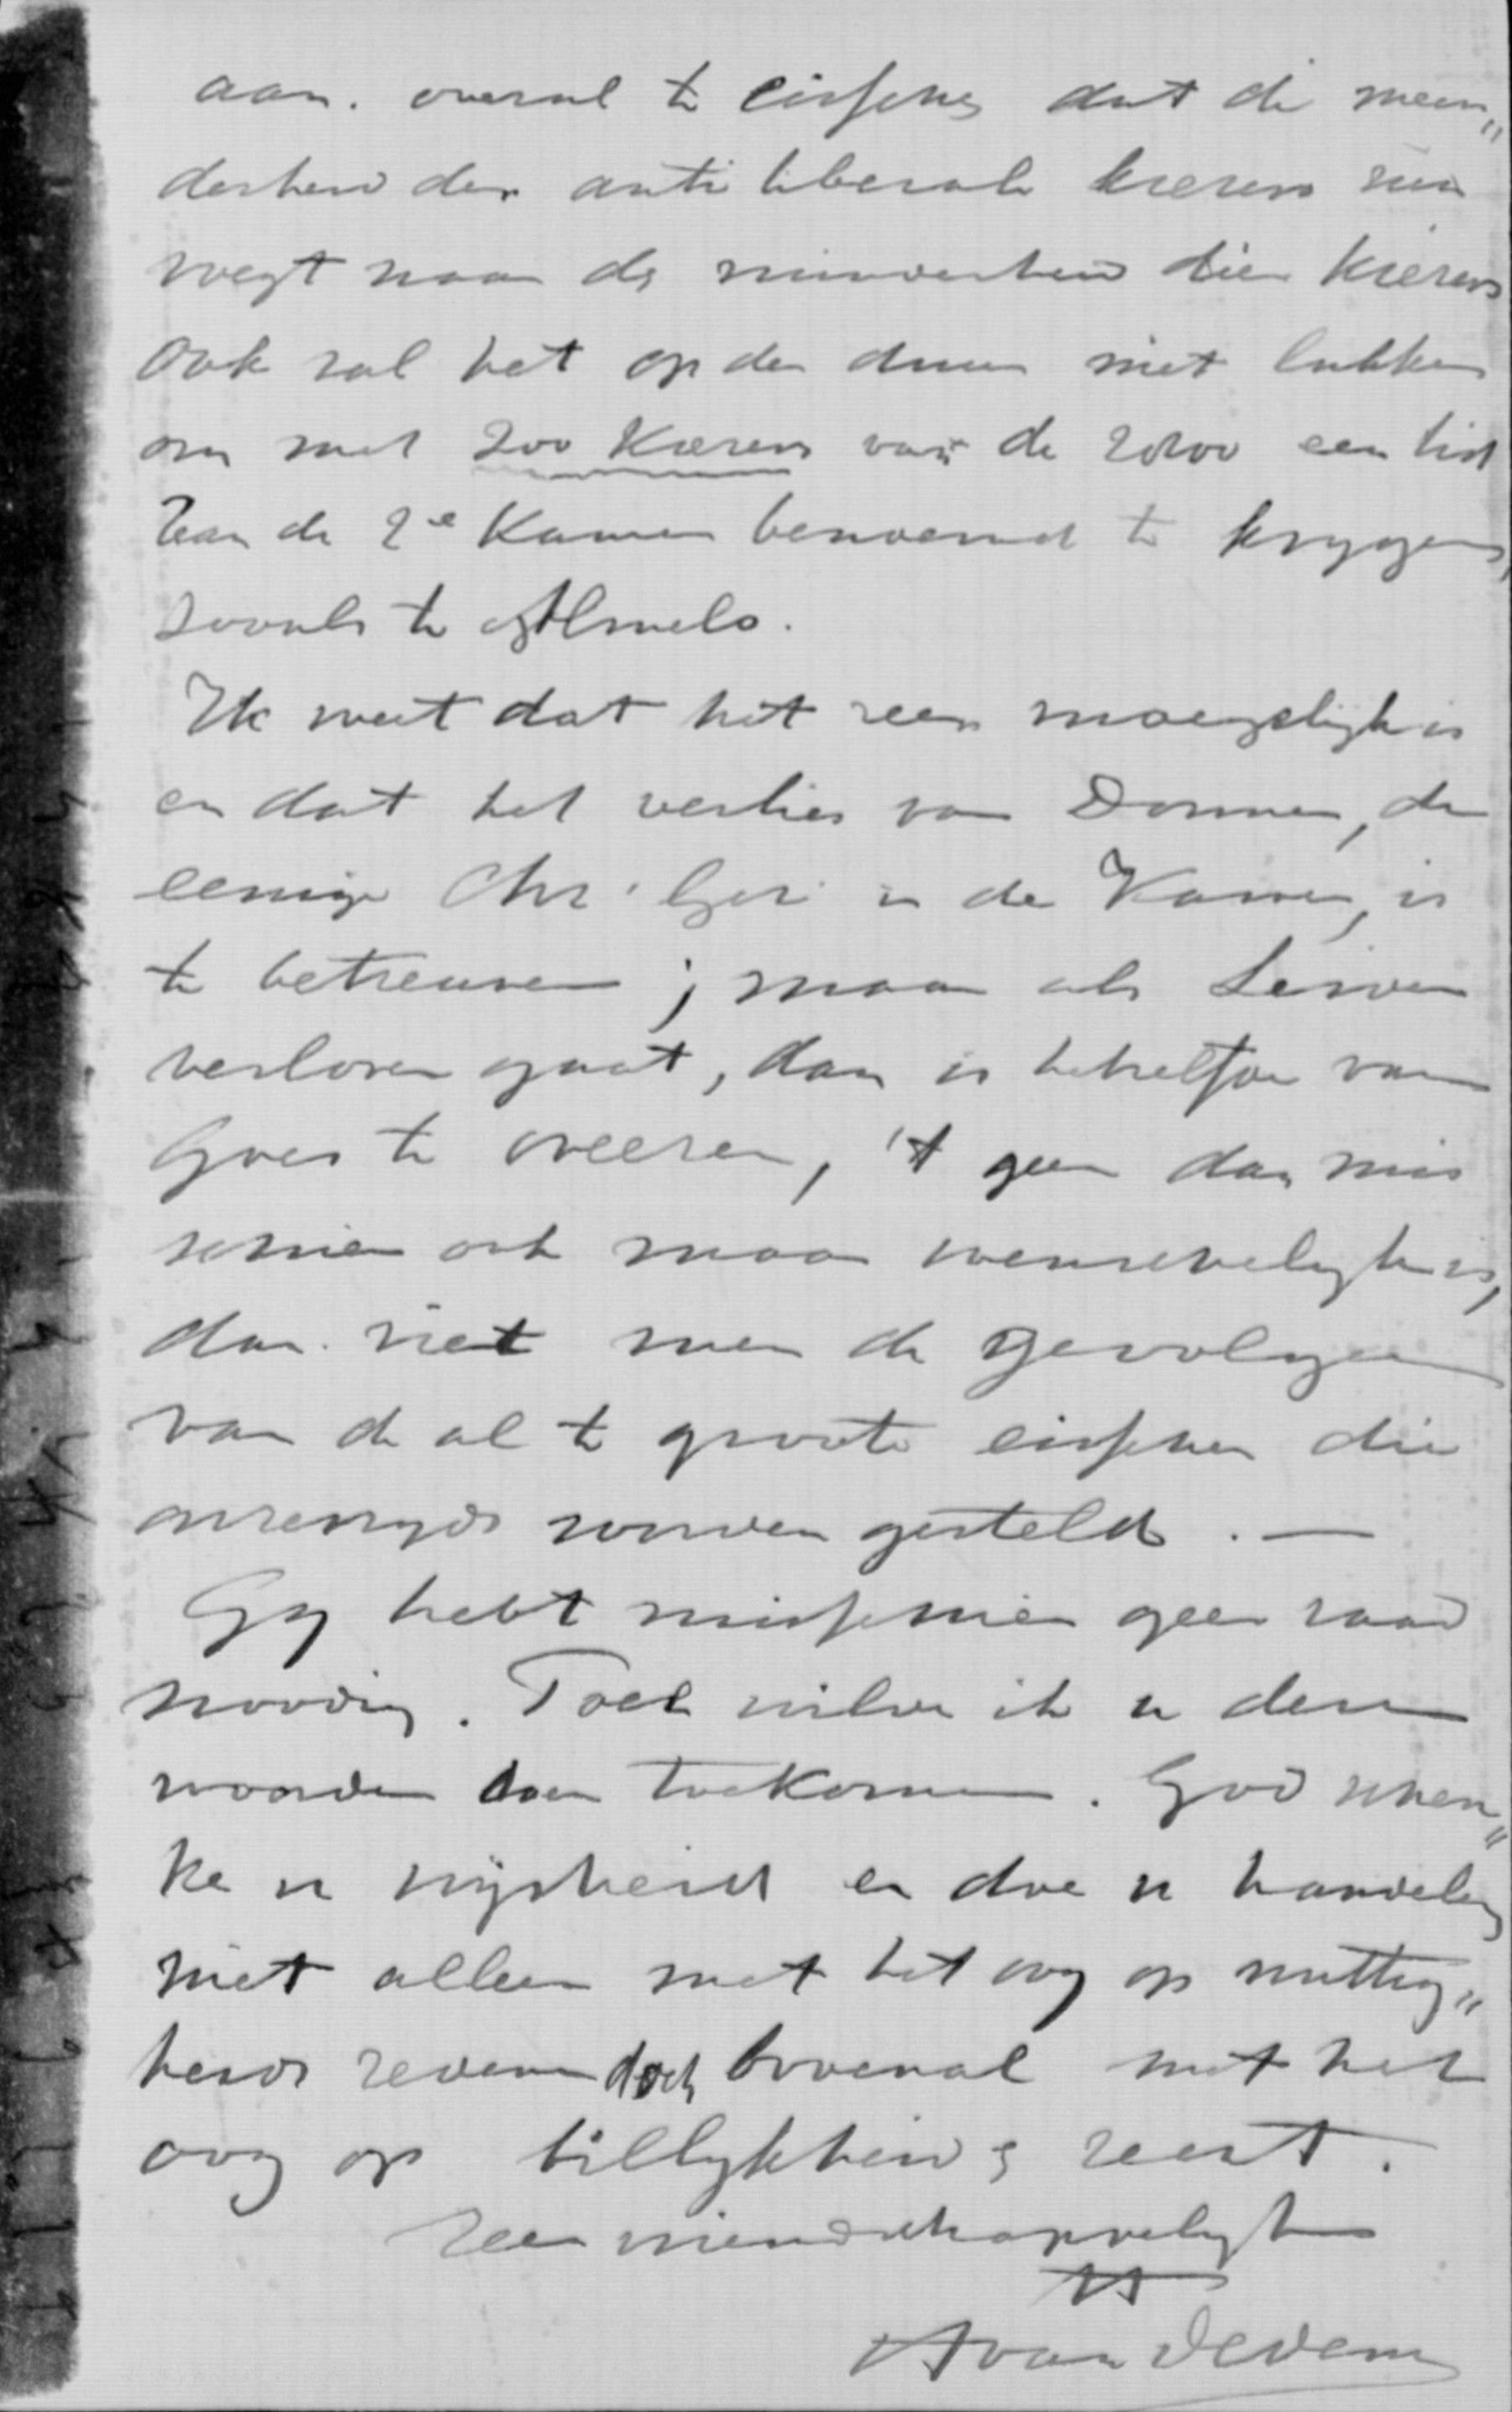 aan. overal te eisschen dat de meer„
derheid der anti liberale kiezers zich
voegt naar de minderheid dier kiezers
Ook zal het op den duur niet lukken
om met 200 Kiezers van de 2000 een lid
van de 2e Kamer benoemd te krygen,
zooals te Almelo.
Ik weet dat het zeer moeyelijk is
en dat het verlies van Donner, de
eenige Chr. Ger. in de Kamer, is
te betreuren; maar als Leiden
verloren gaat, dan is hetzelfde van
Goes te vreezen, 't geen dan mis
schien ook maar wenschelyk is,
dan ziet men de gevolgen
van de al te groote eisschen die
onzerzyds worden gesteld. —
Gy hebt misschien geen raad
noodig. Toch wilde ik u deze
woorden doen toekomen. God schen„
ke u wijsheid en doe u handelen
niet alleen met het oog op nuttig„
heids redenen doch bovenal met het
oog op billykheid & recht.
Zeer vriendschappelyk
tt
A van Dedem